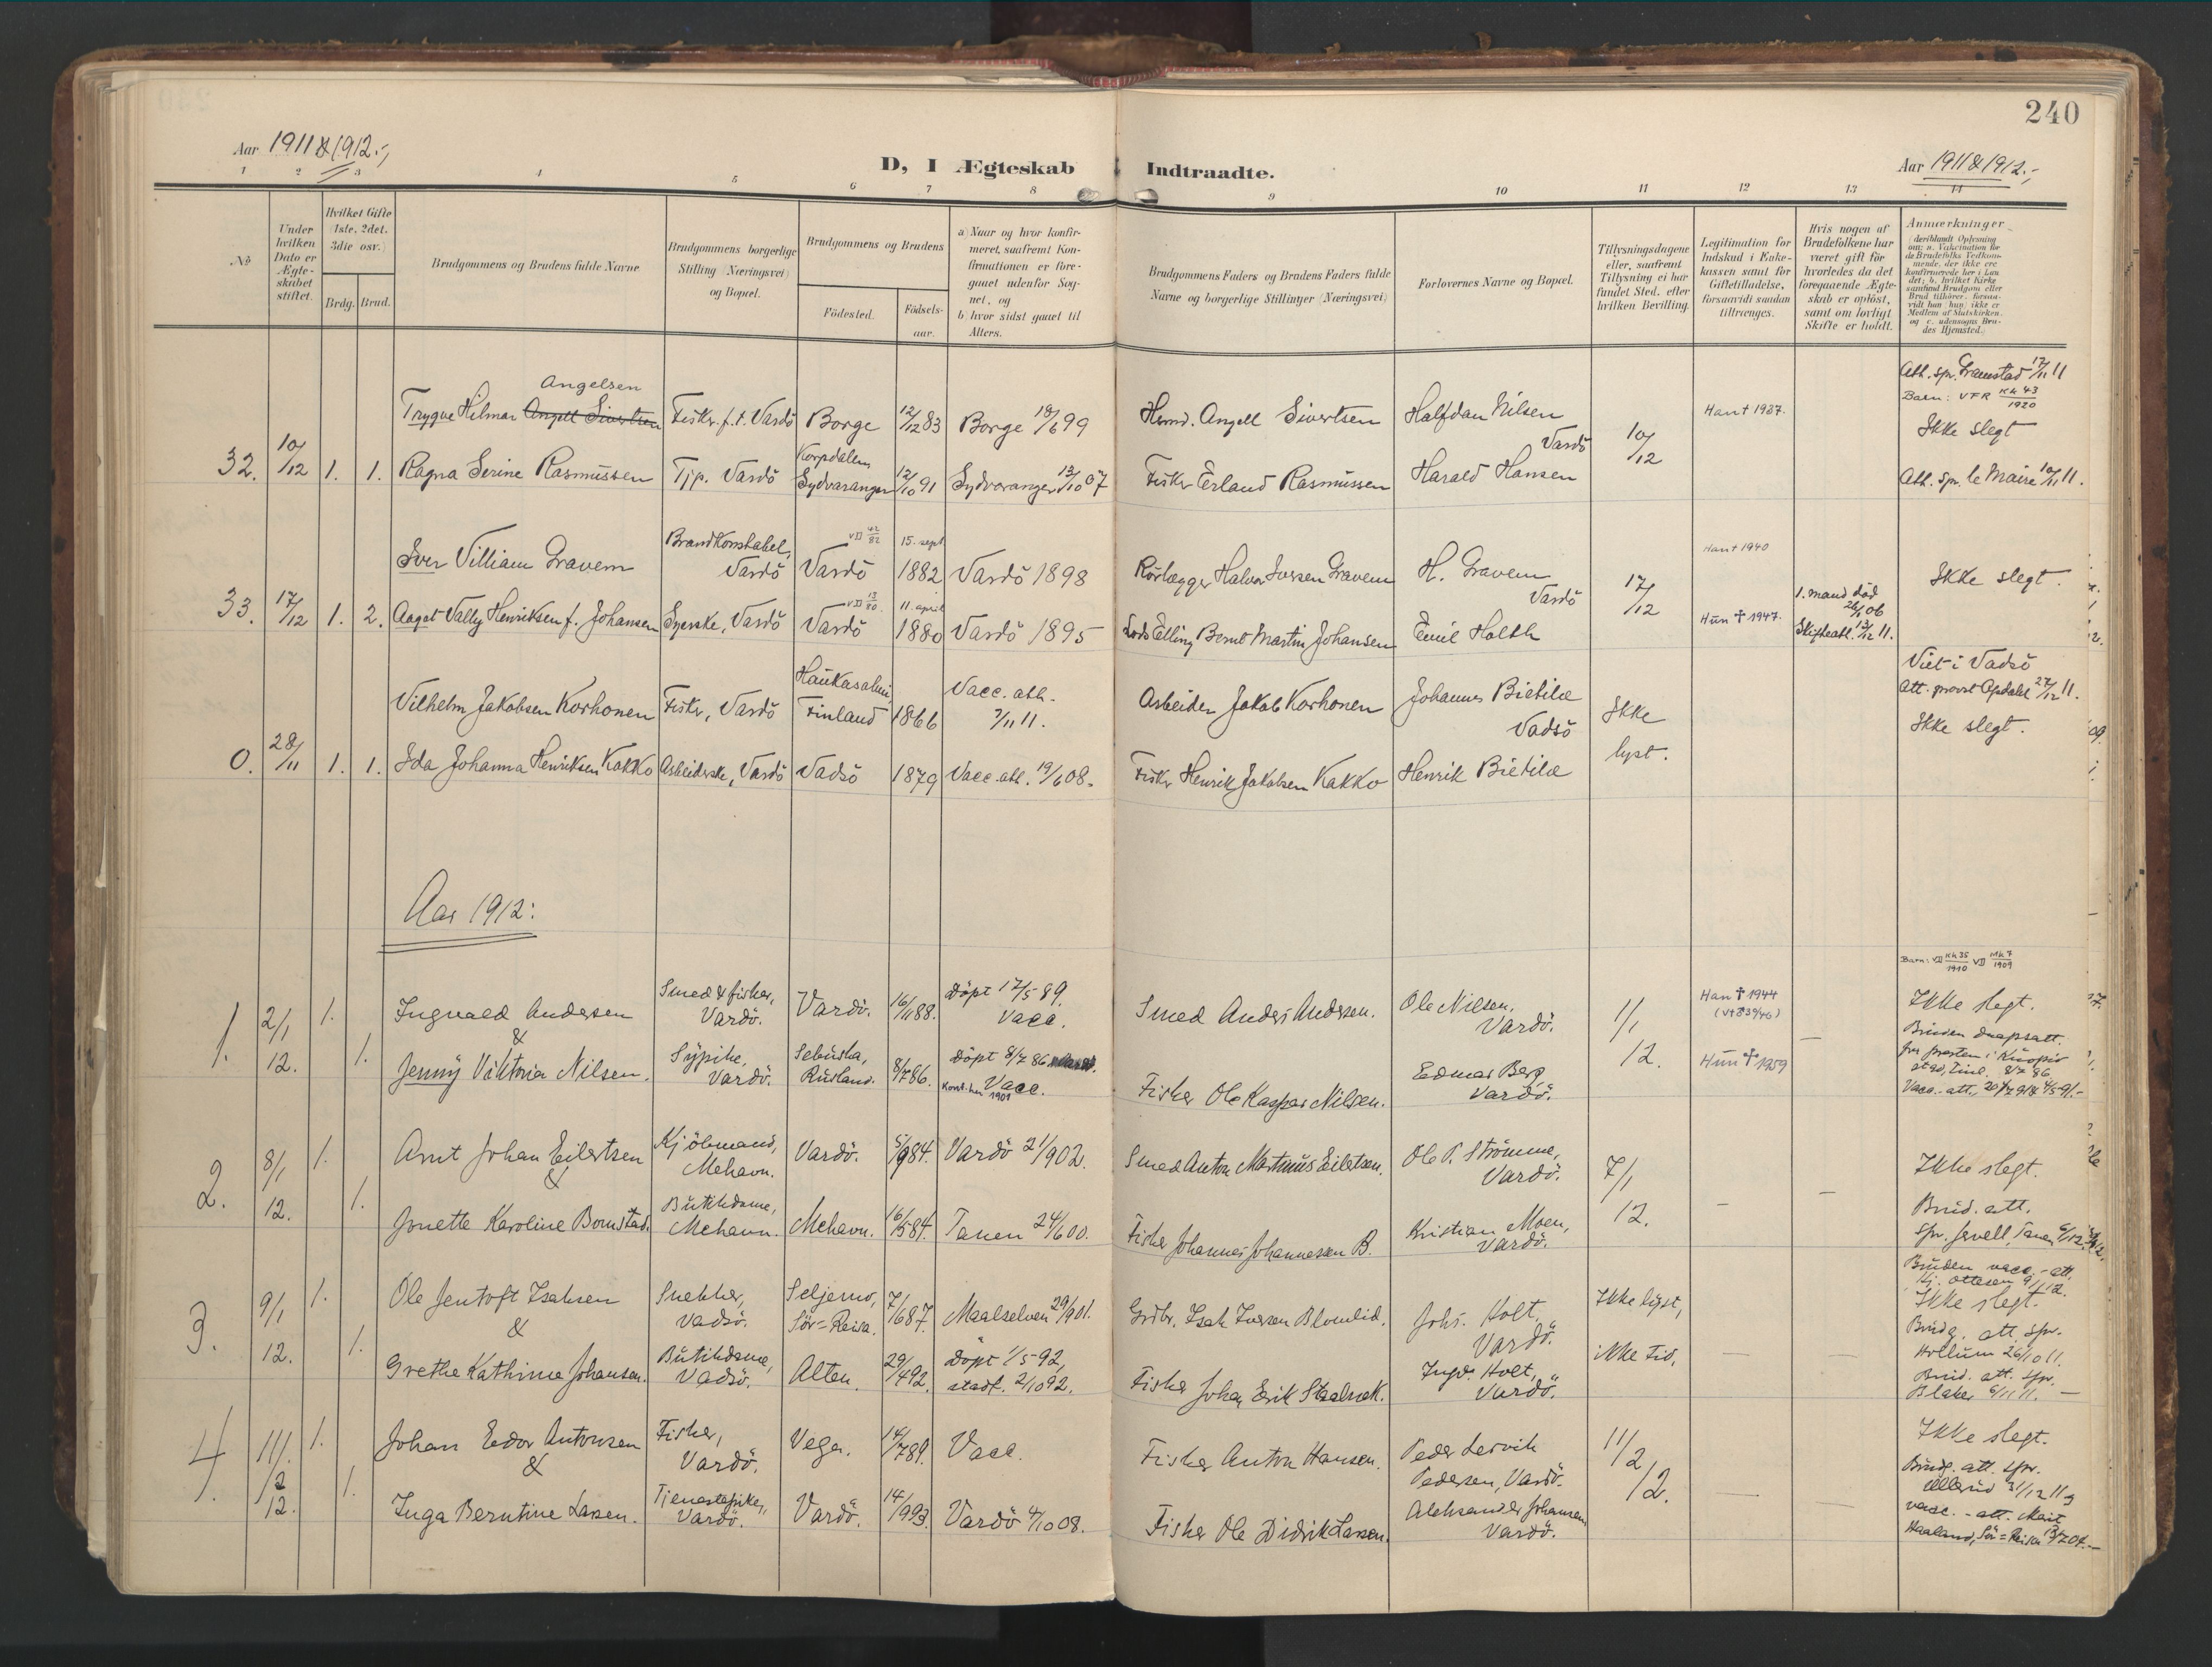 240
Aar 1911 & 1912.
D, I Ægteskab Indtraadte.
Aar 1911 & 1912.
1 2 3 4 5 6 7 8 9 10 11 12 13 14
No
Under hvilken Dato er Ægteskabet stiftet.
Hvilket Gifte (1ste, 2det. 3die osv.)
Brdg. Brud.
Brudgommens og Brudens fulde Navne
Brudgommens borgerlige Stilling (Næringsvei) og Bopæl.
Brudgommens og Brudens
Fødested. Fødselsaar.
a) Naar og hvor konfirmeret, saafremt Konfirmationen er foregaaet udenfor Sognet, og
b) hvor sidst gaaet til Alters.
Brudgommens Faders og Brudens Faders fulde Navne og borgerlige Stillinger (Næringsvei)
Forlovernes Navne og Bopæl.
Tillysningsdagene eller, saafremt Tillysning ei har fundet Sted, efter hvilken Bevilling.
Legitimation for Indskud i Enkekassen samt for Giftetilladelse, forsaavidt saadan tiltrænges.
Hvis nogen af Brudefolkene har været gift før hvorledes da det foregaaende Ægteskab er opløst, samt om lovligt Skifte er holdt.
Anmærkninger
(deriblandt Oplysning om: a. Vakcination for de Brudefolks Vedkommende, der ikke ere konfirmerede her i Landet; b. hvilket Kirkesamfund Brudgom eller Brud tilhører, forsaavidt han (hun) ikke er Medlem af Statskirken. og c. udensogns Brudes Hjemsted.)
Angelsen
Trygve Hilmar Angell Sivertsen Fisker f.t. Vardö Borge 12/12 83 Borge 18/6 99 Hermd. Angell Sivertsen Halfdan Nilsen Vardö Han † 1937.
Att. spr. Gramstad 17/11 11
Barn: VFR Kk 43 1920
Ikke slegt
32. 10/12 1. 1. Ragna Serine Rasmussen Tjp. Vardö Korpdalen Sydvaranger 12/10 91 Sydvaranger 13/10 07 Fisker Erland Rasmussen Harald Hansen 10/12
Att. spr. le Maire 10/11 11.
Iver Villiam Gravem Brandkonstabel, Vardö VD 42/82 Vardö 15. sept 1882 Vardö 1898 Rörlægger Halvor Iversen Gravem H. Gravem Vardö Han † 1940 Ikke slegt.
33. 17/12 1. 2. Aagot Vally Henriksen f. Johansen Syerske, Vardö VD 13/80 Vardö 11. april 1880 Vardö 1895 Lods Elling Bernt Martin Johansen Emil Holth 17/12 Hun † 1947. 1. mand död 26/1 06 Skifteatt. 13/12 11.
Vilhelm Jakobsen Korhonen Fisker, Vardö Haukasalmi Finland 1866 Vacc. att. 7/11 11. Arbeider Jakob Korhonen Johannes Bietilæ Vadsö Ikke lyst.
Viet i Vadsö
att. provst Opdahl 27/12 11.
Ikke slegt.
0. 28/11 1. 1. Ida Johanna Henriksen Kakko Arbeiderske, Vardö Vadsö 1879 Vacc. att. 19/6 08. Fisker Henrik Jakobsen Kakko Henrik Bietilæ
Aar 1912:
Barn: VD Kk 35 1910 VD Mk 7 1909
1. 2/1 12. 1. Ingvald Andersen & Smed & fisker, Vardö. Vardö. 16/11 88. Döpt 17/5 89. Vacc. Smed Anders Andersen. Ole Nilsen, Vardö. 1/1 12. Han † 1944 Ikke slegt.
1. Jenny Viktoria Nilsen. Sypike, Vardö. Rusland. 8/7 86. Döpt 8/7 86 Vacc. Konf. her 1901 Fisker Ole Kaspar Nilsen. Edmar Berg, Vardö. Hun † 1959
Bruden daapsatt.
fra presten i Kuopio
Vacc.-att.
2. 8/1 12. 1. Arnt Johan Eilertsen & Kjöbmand, Mehavn. Vardö. 5/9 84. Vardö 21/9 02. Smed Anton Martinus Eilertsen. Ole P. Strömme, Vardö. 7/1 12. Ikke slegt.
1. Jonette Karoline Bomstad. Butikdame, Mehavn. Mehavn. 16/5 84. Tanen 24/6 00. Fisker Johannes Johannesen B. Kristian Moen, Vardö. Brud. att.
3. 9/1 12. 1. Ole Jentoft Isaksen & Snekker, Vadsö. Seljemo, Sör=Reisa. 7/6 87. Maalselven 29/9 01. Grdbr. Isak Iversen Blomlid. Johs. Holt, Vardö. Ikke lyst, ikke tid.
Bruden vacc.-att.
Ikke slegt.
1. Grethe Kathrine Johansen. Butikdame, Vadsö. Alten. 29/4 92. Döpt 1/5 92, stadf. 2/10 92. Fisker Johan Erik Ingv. Holt, Vardö.
Brudg. att. spr.
Hollum 26/10 11.
Brud. att. spr.
Blaker 6/11 11.
4. 11/2 12. 1. Johan Edor Antonsen & Fisker, Vardö. Vega. 14/7 89. Vacc. Fisker Anton Hansen. Peder Lervik Pedersen, Vardö. 11/2 12. Ikke slegt.
1. Inga Berntine Larsen. Tjenestepike, Vardö. Vardö. 14/9 93. Vardö 4/10 08. Fisker Ole Didrik Larsen. Aleksander Johansen, Vardö.
Brudg. att. spr.
Ellerud 31/12 11 &
vacc.-att. Marit
Haaland, Sör=Reisa